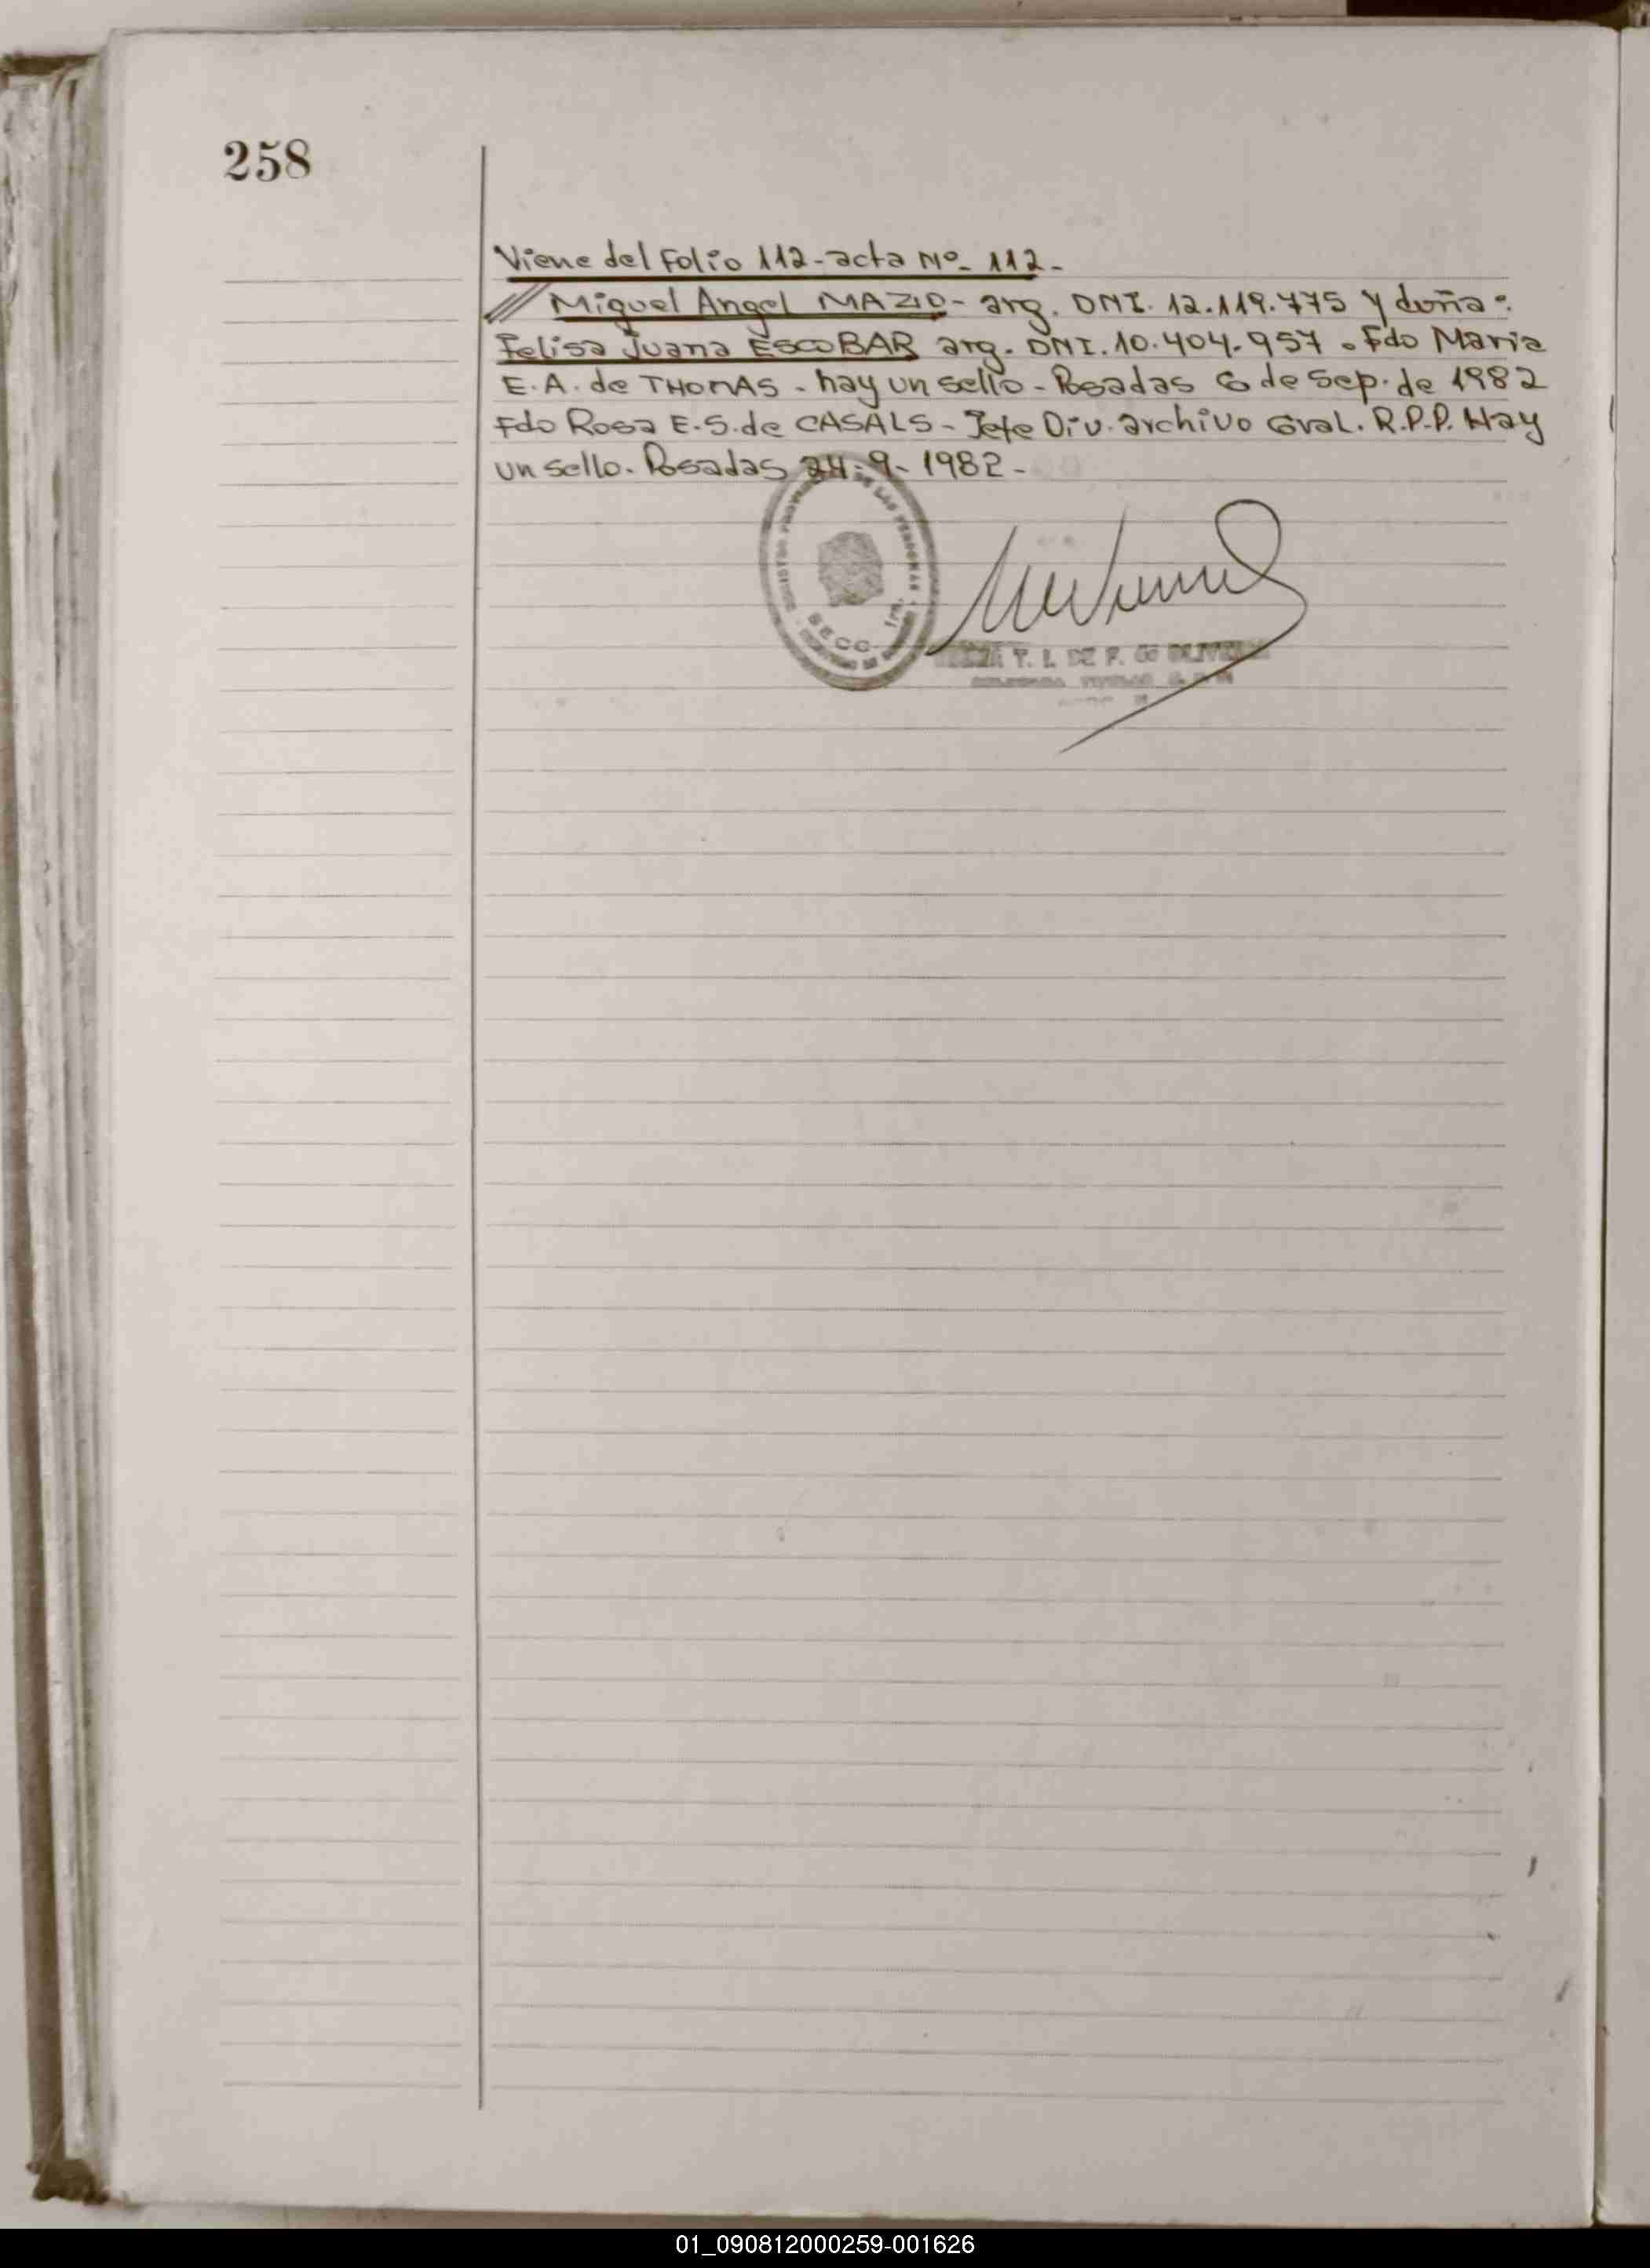 258
Viene del Folio 112-acta Nº- 112-
// Miguel Angel MAZIO- arg. DNI. 12.119.775 y doña:
Felisa Juana ESCOBAR arg. DNI. 10.404.957. Fdo Maria
E.A. de THOMAS - hay un sello - Posadas 6 de Sep. de 1982
Fdo Rosa E.S. de CASALS - Jefe Div. archivo Gral. R.P.P. Hay
un sello. Posadas 24-9-1982-
DE LAS PERSONAS
SECC. 1ra.
T. I. DE F. DE OLIVEIRA
01_090812000259-001626